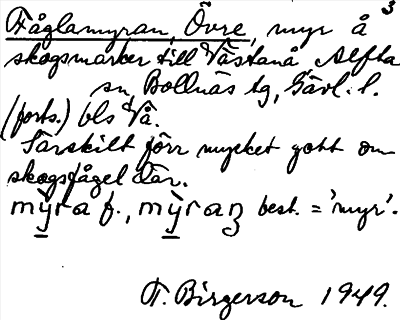 3
Fåglamyran, Övre, myr å
skogsmarker till Västanå Alfta
sn, Bollnäs tg, Gävl. l.
(forts.) bls Vå.
Särskilt förr mycket gott om
skogsfågel där.
mỳra f., mỳraɳ best. = 'myr'.
T. Birgerson 1949.